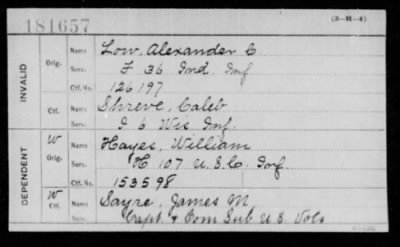 181657
(3-H-4)
INVALID
DEPENDENT
Orig. Name Low, Alexander C.
Serv. F 36 Ind. Inf
Ctf. No. 126197
Ctf. Name Shreve, Caleb
Serv. I 6 Wis Inf.
W Orig. Name Hayes, William
Serv. K 107 U.S.C. Inf.
Ctf. No. 153598
W Ctf. Name Sayre, James M
Serv. Capt. & Com Sub U.S. Vols